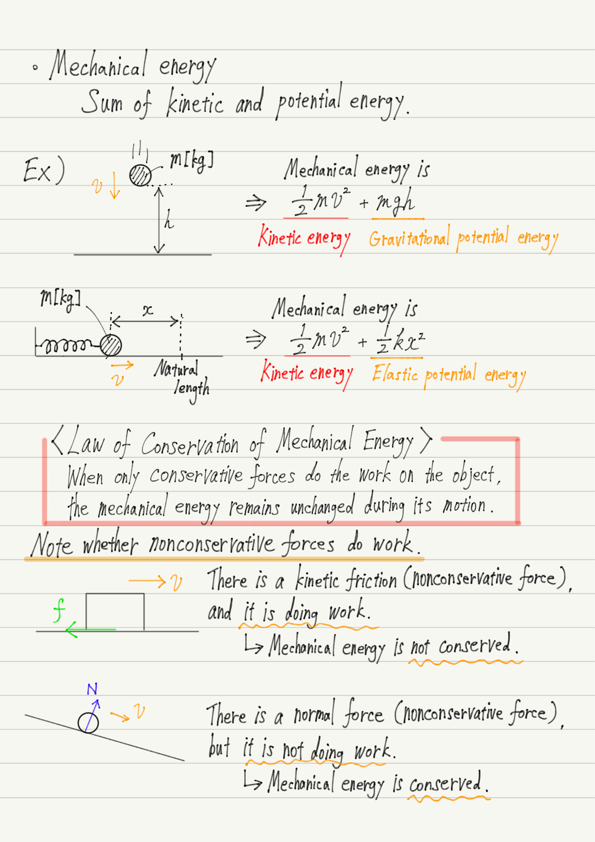 • Mechanical energy
Sum of kinetic and potential energy.
Ex)
m[kg]
v
h
Mechanical energy is
⇒ 1/2 mv² + mgh
Kinetic energy Gravitational potential energy
m[kg]
x
v
Natural
length
Mechanical energy is
⇒ 1/2 mv² + 1/2 kx²
Kinetic energy Elastic potential energy
〈Law of Conservation of Mechanical Energy〉
When only conservative forces do the work on the object,
the mechanical energy remains unchanged during its motion.
Note whether nonconservative forces do work.
v
f
There is a kinetic friction (nonconservative force),
and it is doing work.
↳ Mechanical energy is not conserved.
N
v
There is a normal force (nonconservative force),
but it is not doing work.
↳ Mechanical energy is conserved.